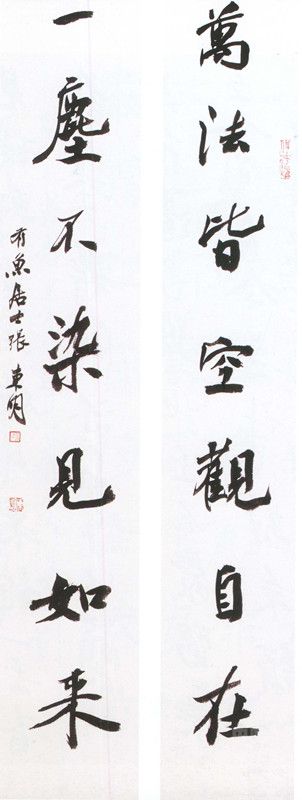 萬法皆空觀自在
一塵不染見如来
有魚居士張東明